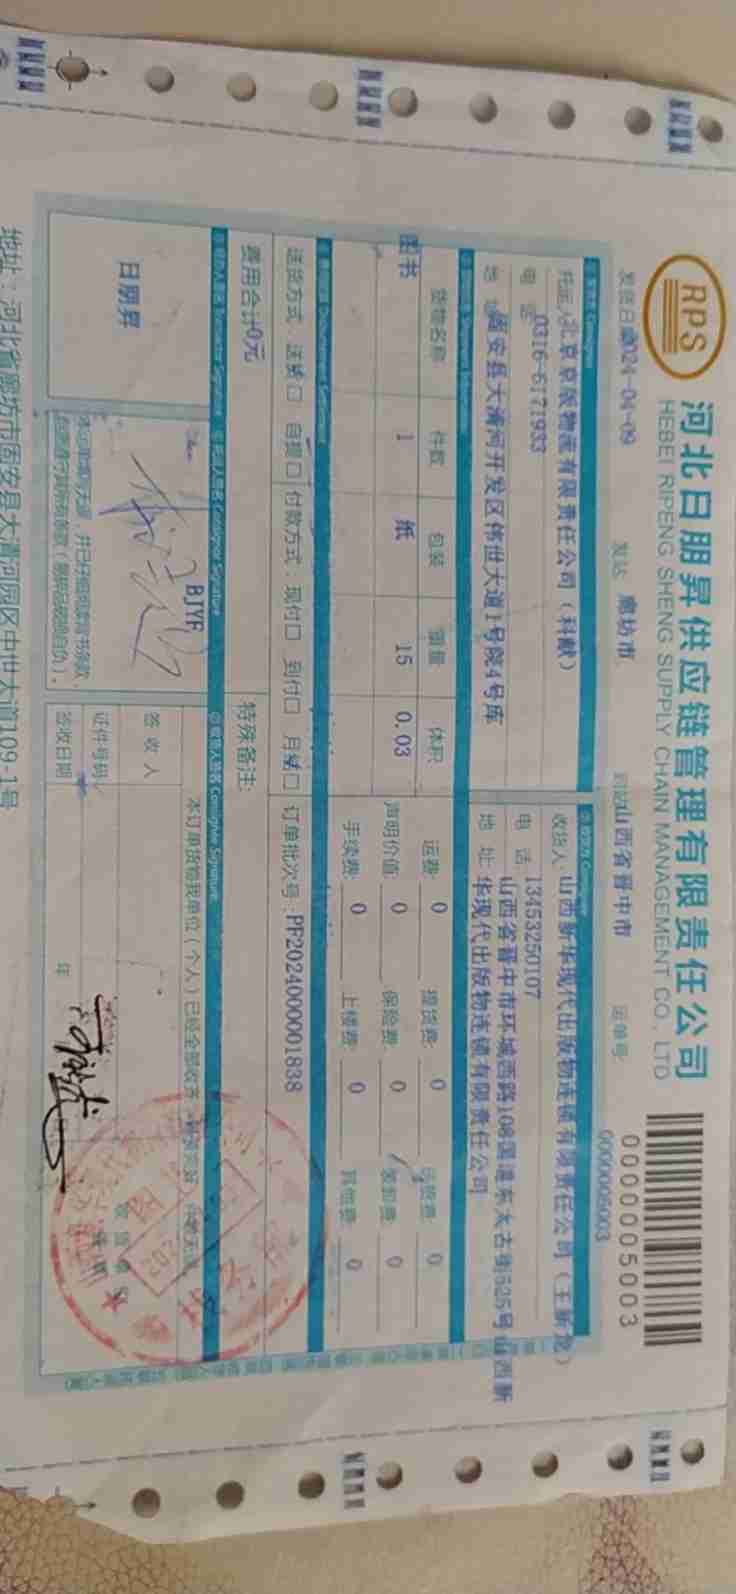 RPS
河北日朋昇供应链管理有限责任公司
HEBEI RIPENG SHENG SUPPLY CHAIN MANAGEMENT CO., LTD
0000005003
发货日期2024-04-09 发站 廊坊市 到站山西省晋中市 运单号: 0000005003
托运人北京京版物流有限责任公司（科献）
电 话0316-6171933
地 址固安县大清河开发区伟世大道1号院4号库
收货人 山西新华现代出版物连锁有限责任公司（王新龙）
电 话 13453250107
地 址 山西省晋中市环城西路108国道东太古街525号山西新
华现代出版物连锁有限责任公司
货物名称 件数 包装 重量 体积
图书 1 纸 15 0.03
运费: 0 提货费: 0 送货费: 0
声明价值: 0 保险费: 0 装卸费: 0
手续费: 0 上楼费: 0 其他费: 0
送货方式 送货口 自提口 付款方式: 现付口 到付口 月结口 订单批次号:PF2024000001838
费用合计0元
特殊备注:
Consignor Signature
Consignee Signature
日朋昇
BJYF
签 收 人
证件号码
签收日期 年
地址: 河北省廊坊市固安县大清河园区中世大道109-1号